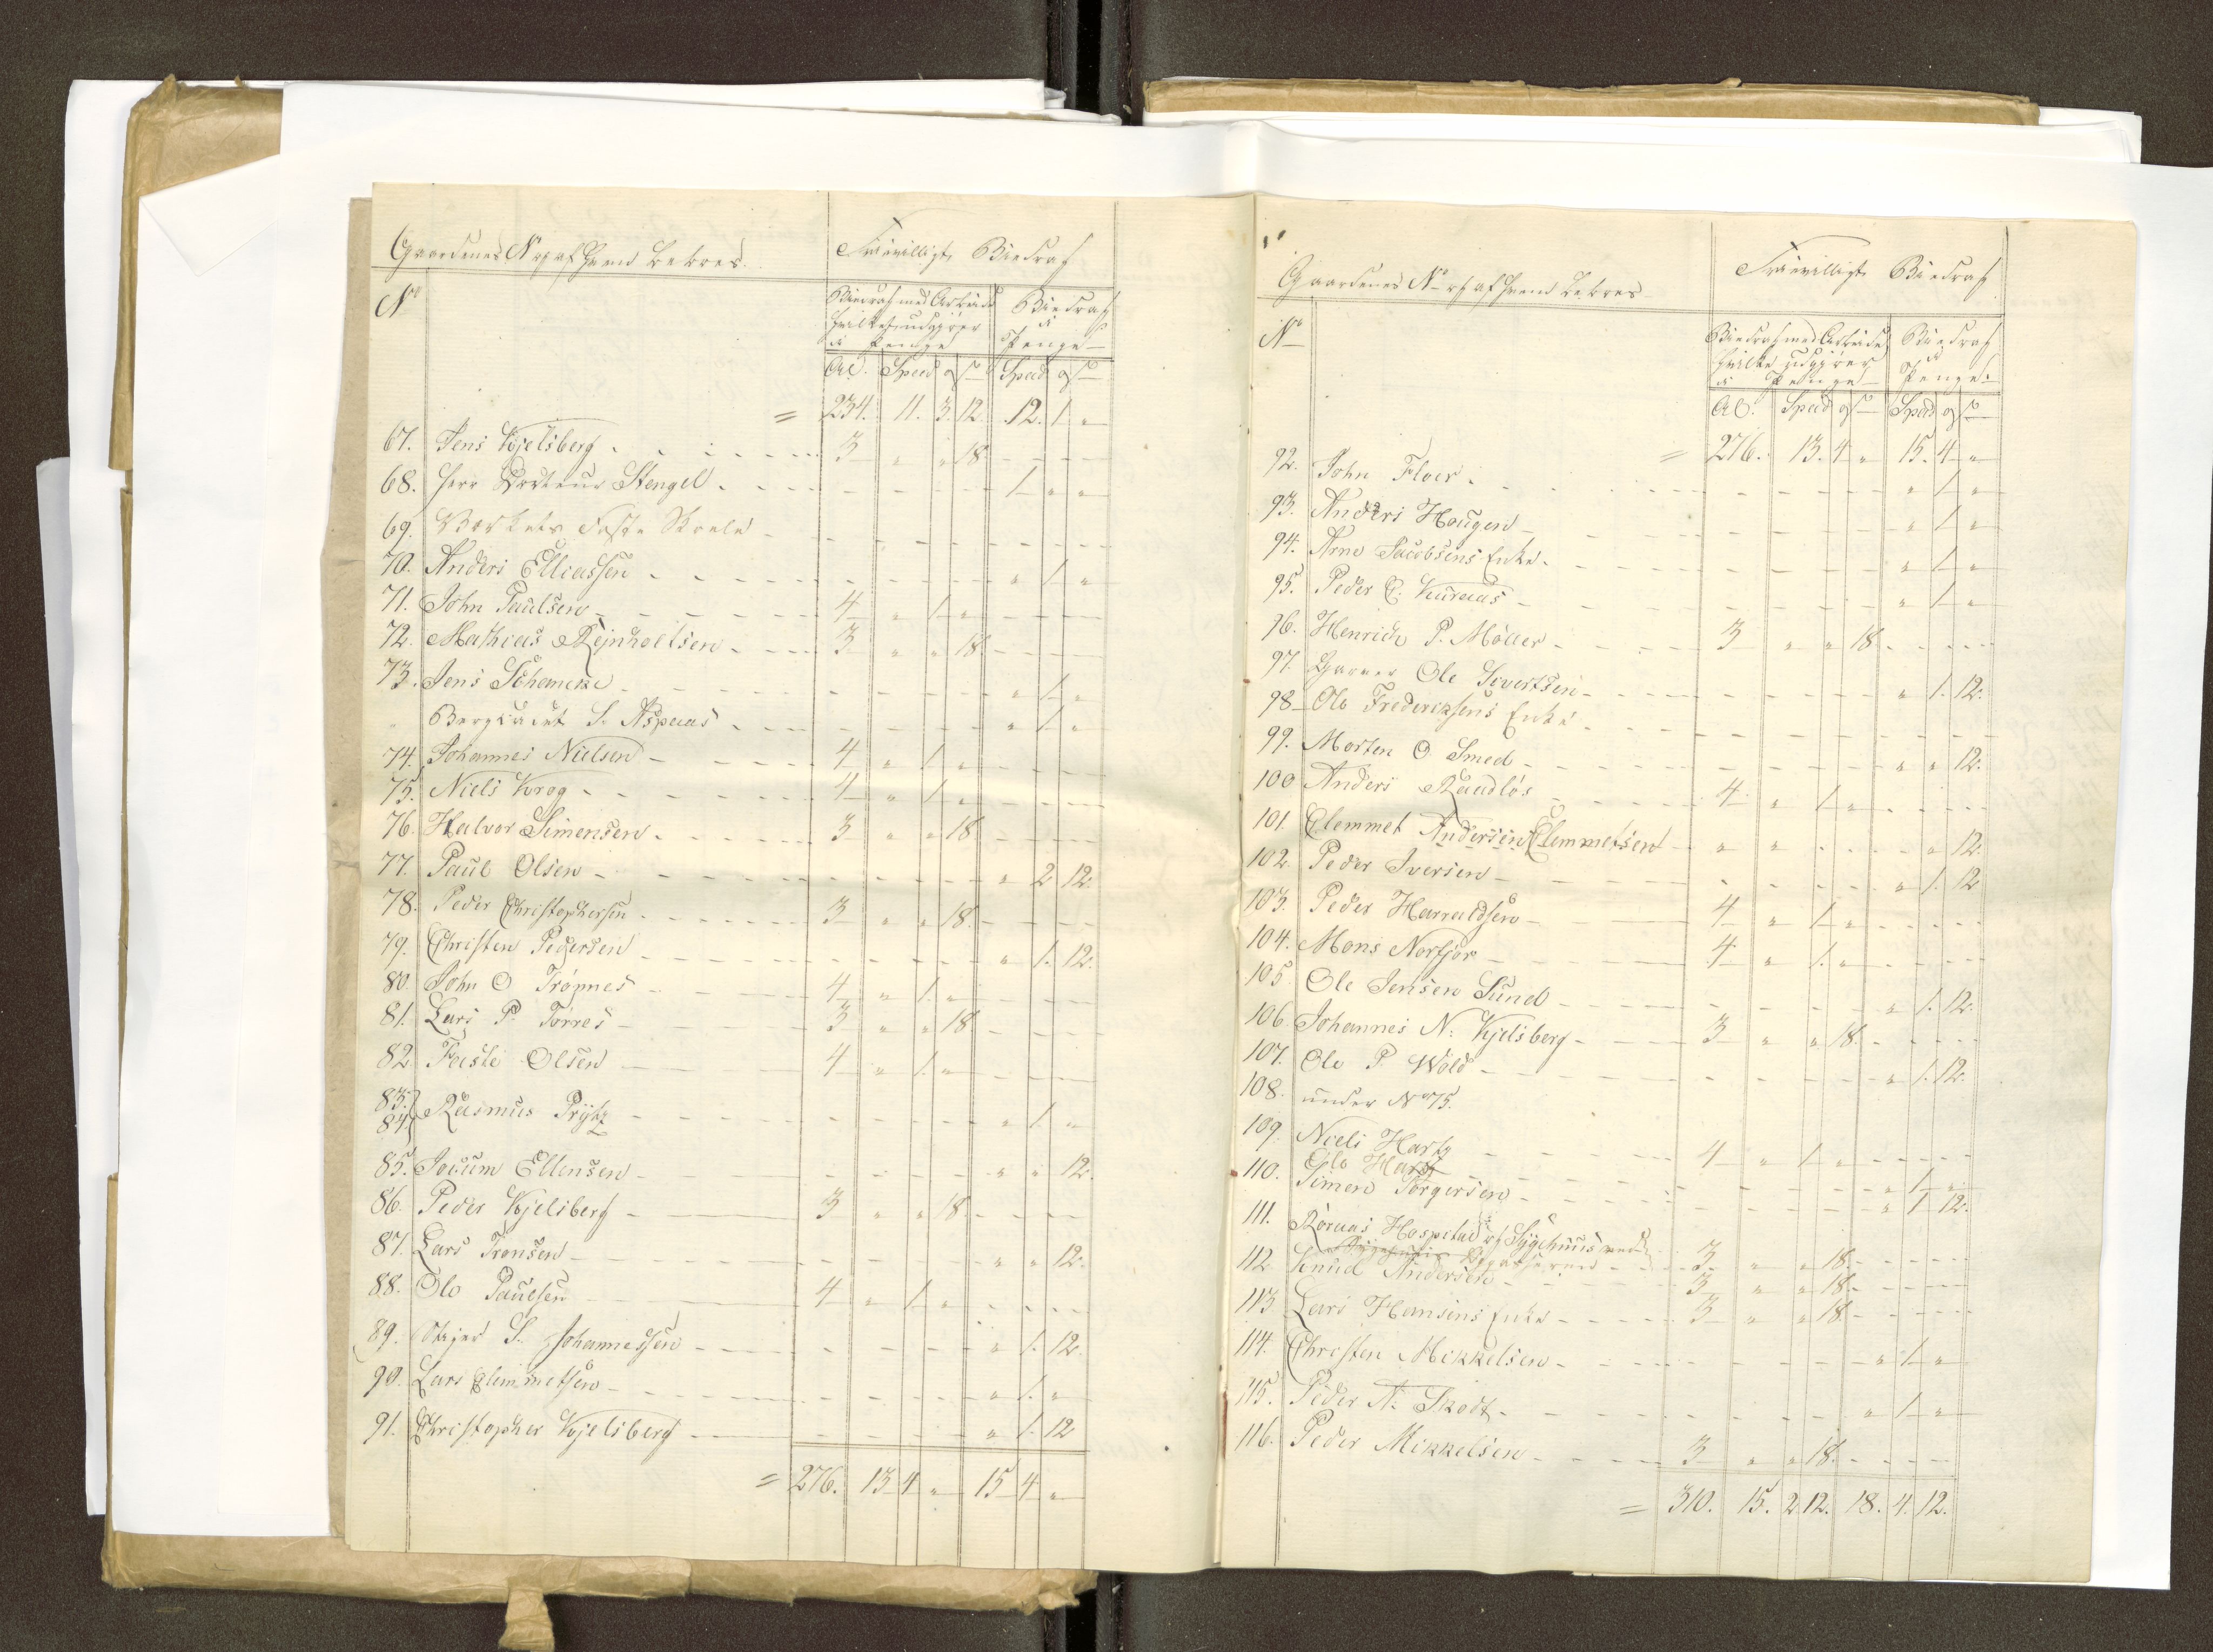 Gaardenes No og af hvem beboes.
Frievilligt Biedrag
No
Biedrag med Arbeide
hvilket udgjører
i Penge
Biedrag
i
Penge
AD. Spec ß
Spec ß
= 234. 11. 3. 12. 12. 1 "
67. Jens Kjelsberg 3 " " 18.
68. Herr Docteur Stengel 1 " "
69. Værkets faste Skole
70. Anders Elliassen " 1. "
71. John Paulsen 4 " 1. "
72. Mathias Rejnholtsen 3 " " 18.
73. Jens Schancke " 1. "
" Bergcadet S. Aspaas " 1. "
74. Johannes Nielsen 4 " 1. "
75. Niels Krog 4 " 1. "
76. Halvor Simensen 3 " " 18
77. Paul Olsen " 2 12.
78. Peder Christophersen 3 " " 18.
79. Christen Pedersen " 1. 12.
80. John O Trøgnes 4 " 1. "
81. Lars P. Torres 3 " " 18
82. Faste Olsen 4 " 1. "
83. 84. Rasmus Prÿtz " 1. "
85. Jocum Ellensen " " 12.
86. Peder Kjelsberg 3 " " 18.
87. Lars Tronsen " " 12.
88. Ole Paulsen 4 " 1. "
89. Stiger S. Johannessen " 1. 12.
90. Lars Clemmetsen " 1. "
91. Christopher Kjelsberg " 1. 12
= 276. 13 4 " 15 4 "
Gaardenes No og af hvem beboes
Frievilligt Biedrag
No
Biedrag med Arbeide
hvilke udgjører
i Penge
Biedrag
i
Penge:
AD. Spec ß
Spec ß
= 276. 13. 4 " 15. 4 "
92. John Floer " 1. "
93. Anders Haugen " 1. "
94. Arne Jacobsens Enke " 1. "
95. Peder C. Kuraas " 1. "
96. Henrich P. Møller 3 " " 18
97. Garver Ole Sivertsen " 1. 12.
98 Ole Fredericksens Enke
99. Morten O Smed " " 12.
100 Anders Raadløs 4 " 1. "
101. Clemmet Andersen Clemmetsen " " 12.
102. Peder Iversen " 1. 12
103. Peder Harraldsen 4 " 1. "
104. Mons Norfjor 4 " 1. "
105. Ole Jensen Sund " 1. 12.
106. Johannes N. Kjelsberg 3 " " 18.
107. Ole P. Wold " 1. 12.
108. under No 75.
109. Niels Hartz 4 " 1. "
Ole Hartz " 1. "
110. Simen Torgersen " 1 12.
111. Røraas Hospital og Sÿgehuus ved
3 " " 18.
112 Knud Andersen 3 " " 18.
113 Lars Hansens Enke 3 " " 18
114. Christen Mikkelsen " 1. "
115. Peder A. Skodt " 1. "
116. Peder Mikkelsen 3 " " 18.
= 310. 15. 2 12. 18. 4. 12.